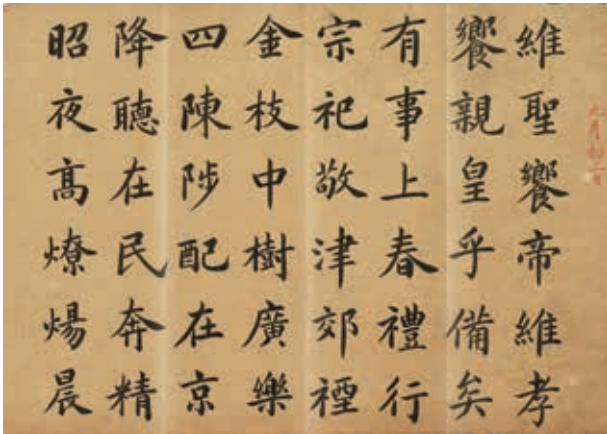 九月初
維聖饗帝維孝
饗親皇乎備矣
有事上春禮行
宗祀敬津郊禋
金枝中樹廣樂
四陳陟配在京
降聽在民奔精
昭夜髙燎煬晨